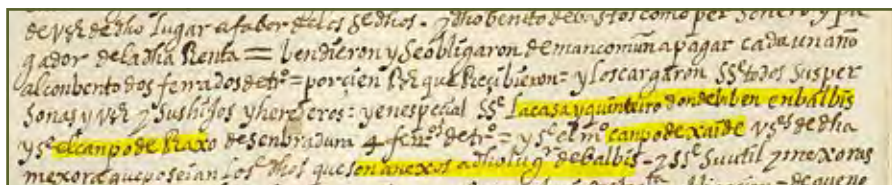 de vzª de dho lugar a fabor de los sedhos - y dho benito de bastos como per sonero y pa
gador de la dha Renta = bendieron y se obligaron de mancomun a pagar cada un año
al conbento dos ferrados de trº = por cien Rs que Recibieron = y los cargaron sse todos sus per
sonas y y sus hijos y herederos = y en especial sse la casa y quinteiro donde biben en balbis
y se el canpo de Raxo de senbradura 4 ferºs de trº = y se el mº canpo de xaide de dha
mexora que poseian los dhos que son anexos a dho lugr de balbis - y sse su util y mexoras